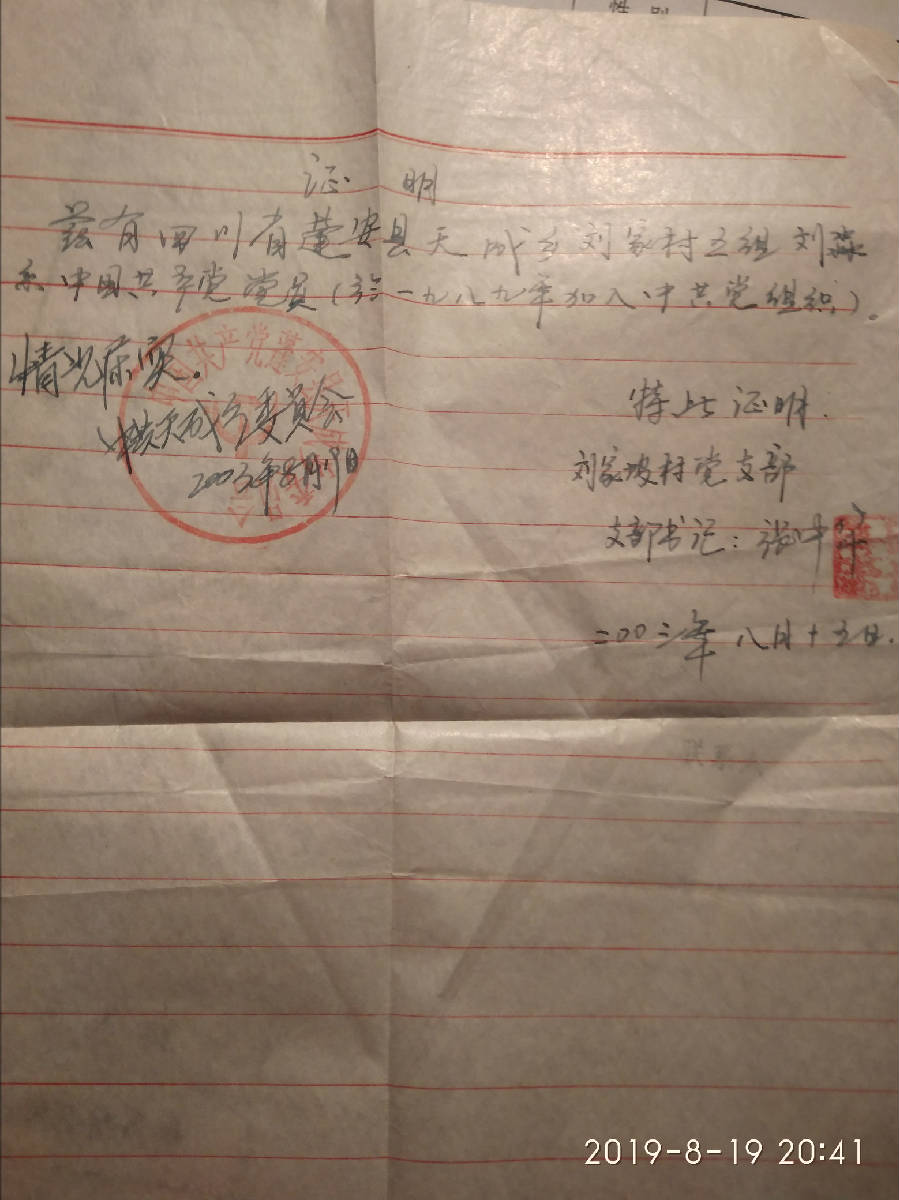 性别
证 明
兹有四川省蓬安县天成乡刘家村五组刘
系中国共产党党员(于一九八九年加入中共党组织)。
情况属实。
特此证明.
中共天成乡委员会
2003年8月19日
刘家坡村党支部
支部书记:张
二00三年八月十五日.
中国共产党蓬安县
委员会
2019-8-19 20:41